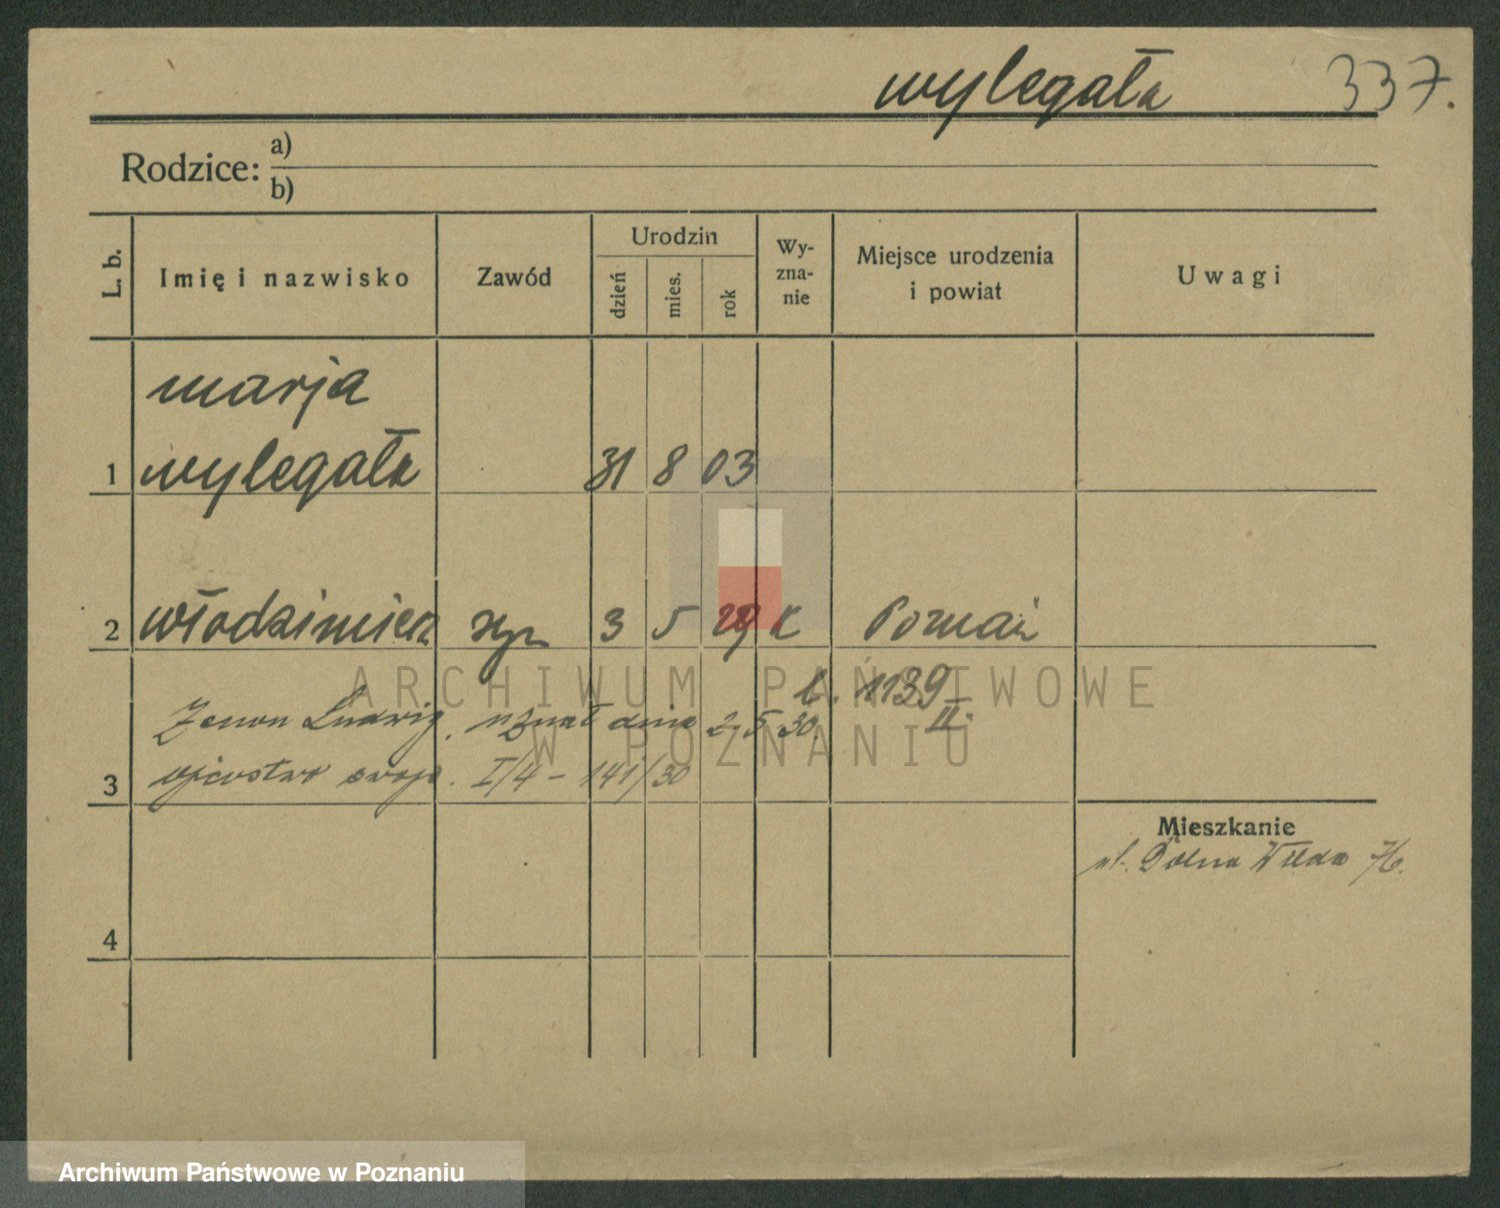 Wylegała 337.
Rodzice: a)
b)
L. b. Imię i nazwisko Zawód Urodzin dzień mies. rok Wy-zna-nie Miejsce urodzenia i powiat Uwagi
Marja
1 Wylegała 31 8 03
2 Włodzimierz syn 3 5 29 k Poznań
1139
II.
Zenon Ludwig. uznał dnia 2.5.30.
3 ojcostwo swoje. I/4 - 141/30
Mieszkanie
ul. Dolna Wilda 76.
4
ARCHIWUM PAŃSTWOWE
W POZNANIU
Archiwum Państwowe w Poznaniu